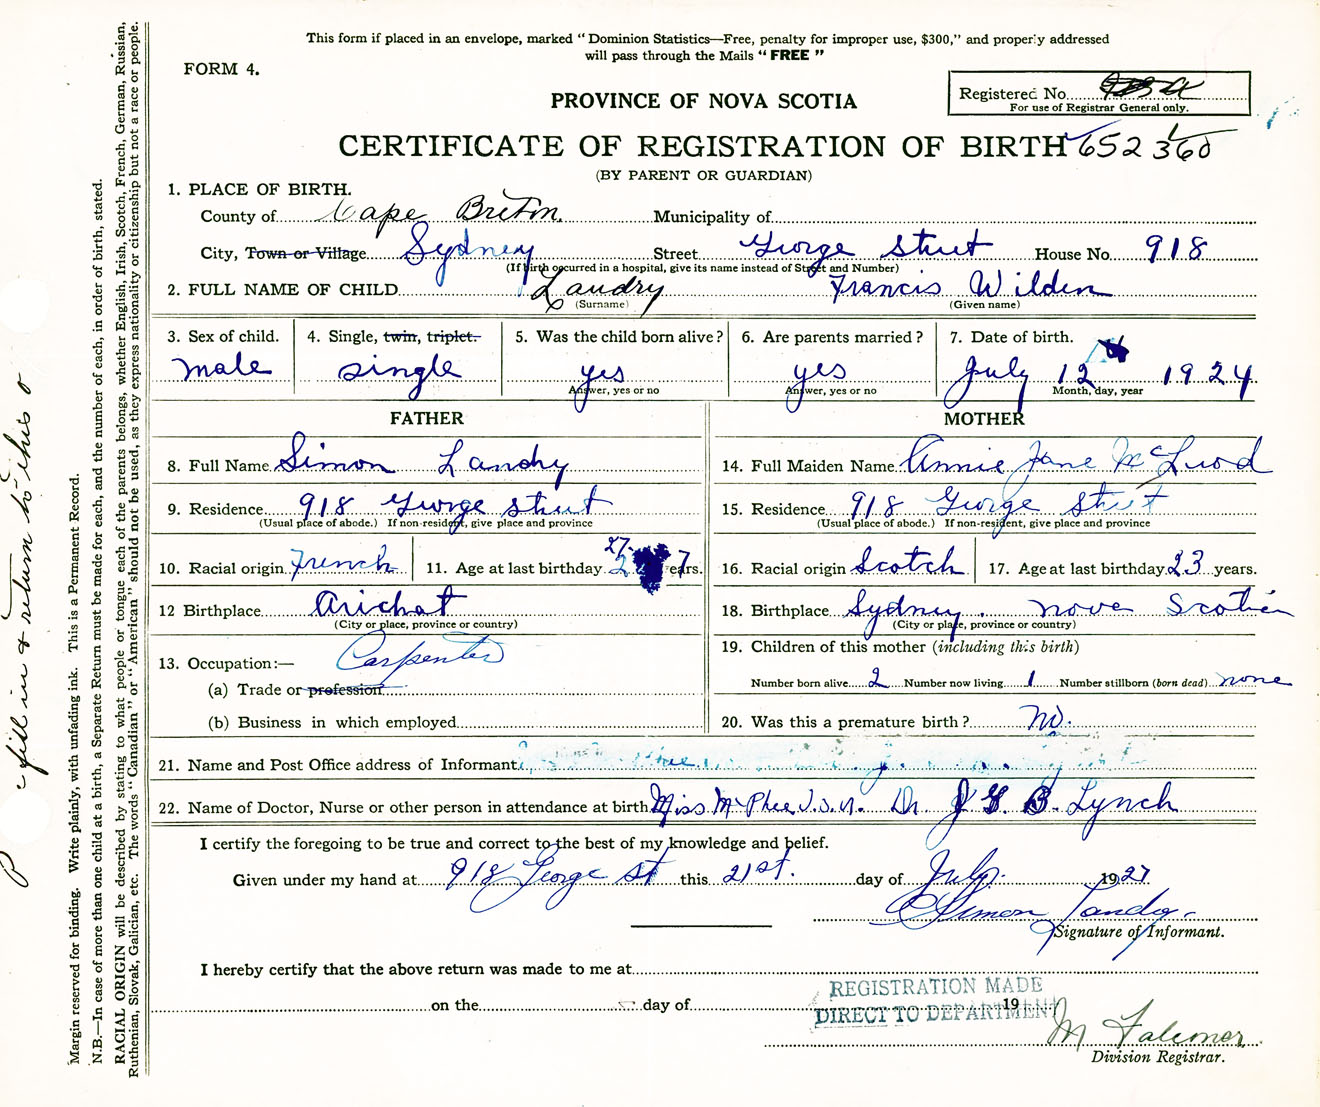 This form if placed in an envelope, marked "Dominion Statistics—Free, penalty for improper use, $300," and properly addressed
will pass through the Mails "FREE"
FORM 4.
Registered No.
For use of Registrar General only.
PROVINCE OF NOVA SCOTIA
CERTIFICATE OF REGISTRATION OF BIRTH 652 360
(BY PARENT OR GUARDIAN)
1. PLACE OF BIRTH.
County of Cape Breton Municipality of
City, Town or Village Sydney Street George Street House No. 918
(If birth occurred in a hospital, give its name instead of Street and Number)
2. FULL NAME OF CHILD Landry Francis Wilden
(Surname) (Given name)
3. Sex of child. 4. Single, twin, triplet. 5. Was the child born alive? 6. Are parents married? 7. Date of birth.
male single yes yes July 12 1924
Answer, yes or no Answer, yes or no Month, day, year
FATHER MOTHER
8. Full Name Simon Landry 14. Full Maiden Name Annie Jane McLeod
9. Residence 918 George Street 15. Residence 918 George Street
(Usual place of abode.) If non-resident, give place and province (Usual place of abode.) If non-resident, give place and province
10. Racial origin French 11. Age at last birthday 27 years. 16. Racial origin Scotch 17. Age at last birthday 23 years.
12 Birthplace Arichat 18. Birthplace Sydney. Nova Scotia
(City or place, province or country) (City or place, province or country)
13. Occupation:— Carpenter 19. Children of this mother (including this birth)
(a) Trade or profession Number born alive 2 Number now living 1 Number stillborn (born dead) none
(b) Business in which employed 20. Was this a premature birth? No.
21. Name and Post Office address of Informant
22. Name of Doctor, Nurse or other person in attendance at birth Miss McPhee V.O.N. Dr. J G B. Lynch
I certify the foregoing to be true and correct to the best of my knowledge and belief.
Given under my hand at 918 George St this 21st. day of July. 1927
Simon Landry
Signature of Informant.
I hereby certify that the above return was made to me at
on the day of 19
REGISTRATION MADE
DIRECT TO DEPARTMENT
M Falconer
Division Registrar.
fill in & return to this o
Margin reserved for binding. Write plainly, with unfading ink. This is a Permanent Record.
N.B.—In case of more than one child at a birth, a Separate Return must be made for each, and the number of each, in order of birth, stated.
RACIAL ORIGIN will be described by stating to what people or tongue each of the parents belongs, whether English, Irish, Scotch, French, German, Russian,
Ruthenian, Slovak, Galician, etc. The words "Canadian" or "American" should not be used, as they express nationality or citizenship but not a race or people.